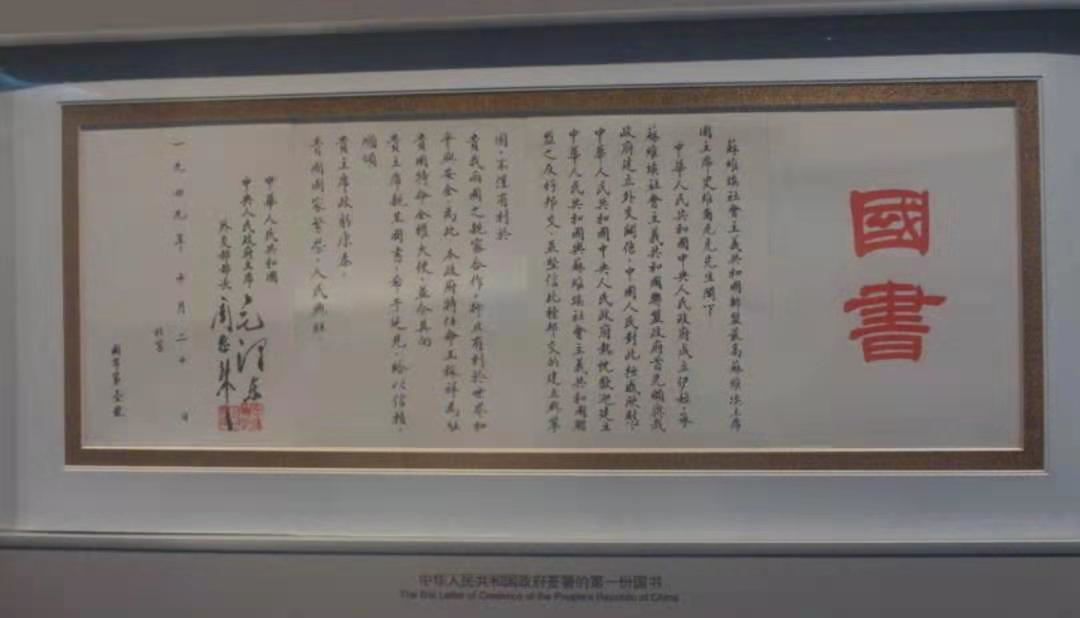 國書
蘇維埃社會主義共和國聯盟最高蘇維埃主席
團主席史維爾尼克先生閣下
中華人民共和國中央人民政府成立伊始,承
蘇維埃社會主義共和國聯盟政府首先願與我
政府建立外交關係,中國人民對此極感欣慰。
中華人民共和國中央人民政府熱忱歡迎建立
中華人民共和國與蘇維埃社會主義共和國聯
盟之友好邦交,並堅信此種邦交的建立與鞏
固,不僅有利於
貴我兩國之親密合作,抑且有利於世界和
平與安全。為此,本政府特任命王稼祥為駐
貴國特命全權大使,並令其向
貴主席親呈國書,希予延見,給以信賴。
順頌
貴主席政躬康泰。
貴國國家繁榮,人民興旺
中華人民共和國
中央人民政府主席 毛澤東
外交部部長 周恩來
一九四九年十月二十日
國字第壹號
中华人民共和国政府签署的第一份国书
The first Letter of Credence of the People's Republic of China